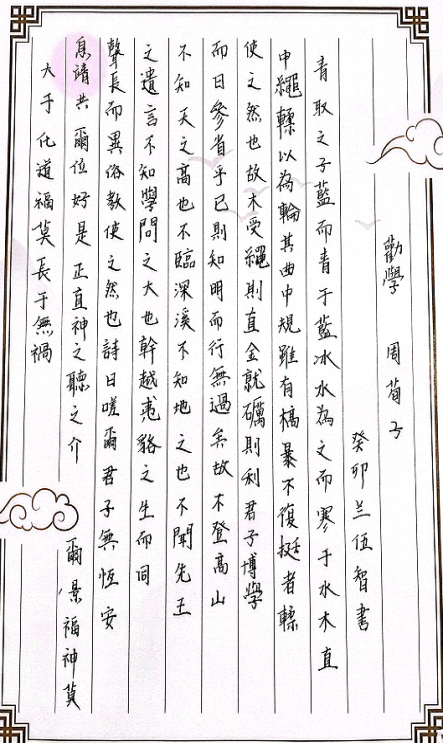 勸學 周荀子
癸卯兰伍智書
青取之于藍而青于藍冰水為之而寒于水木直
中繩輮以為輪其曲中規雖有槁暴不復挺者輮
使之然也故木受繩則直金就礪則利君子博學
而日參省乎已則知明而行無過矣故不登高山
不知天之高也不臨深溪不知地之也不聞先王
之遺言不知學問之大也幹越夷貉之生而同
聲長而異俗教使之然也詩曰嗟爾君子無恆安
息靖共爾位好是正直神之聽之介 爾景福神莫
大于化道福莫長于無禍